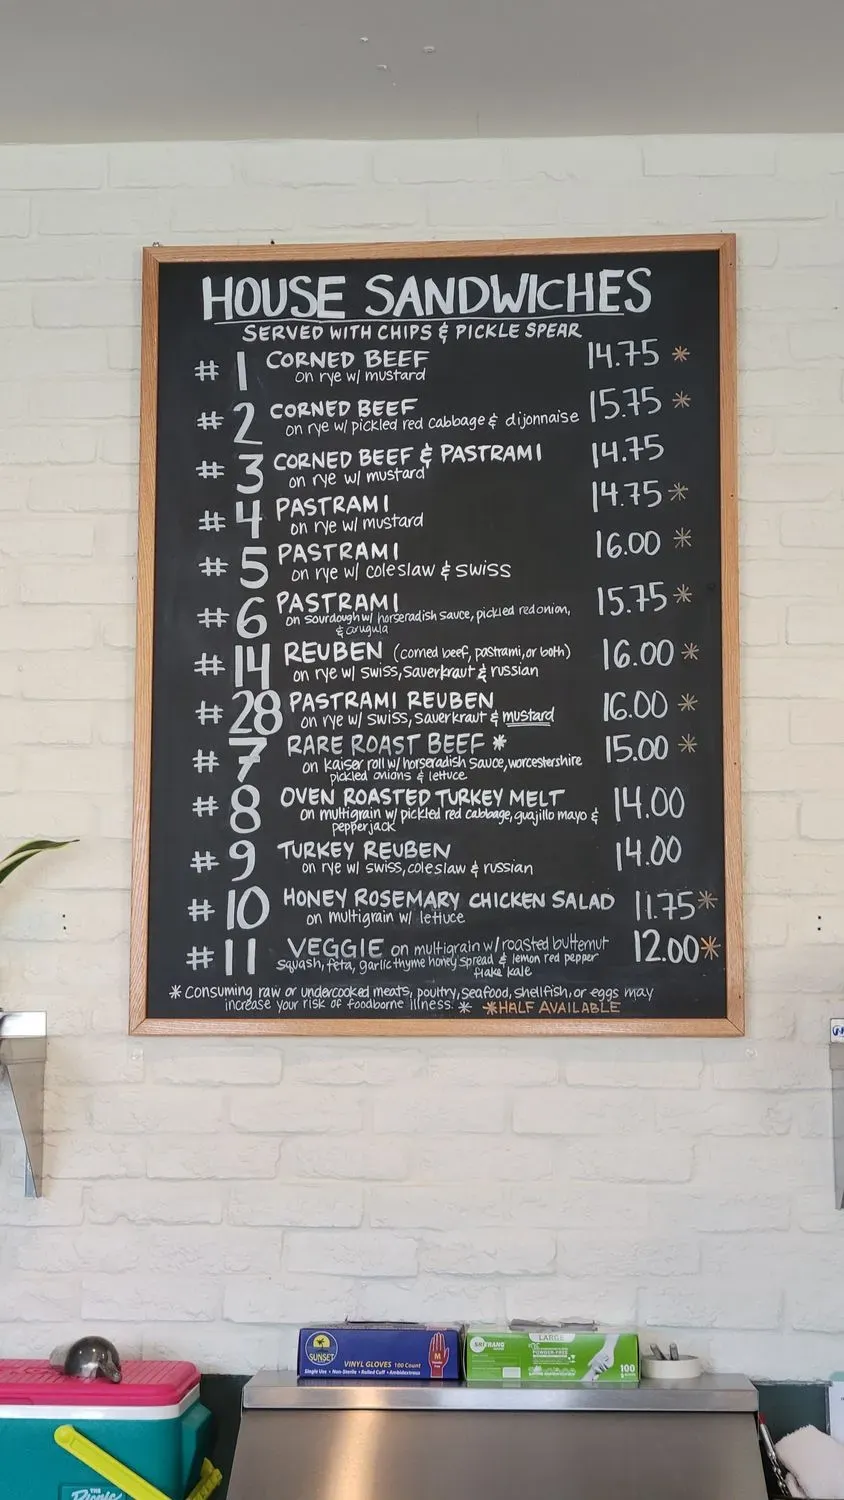 HOUSE SANDWICHES
SERVED WITH CHIPS & PICKLE SPEAR
# 1 CORNED BEEF 14.75 *
on rye w/ mustard
# 2 CORNED BEEF 15.75 *
on rye w/ pickled red cabbage & dijonnaise
# 3 CORNED BEEF & PASTRAMI 14.75
on rye w/ mustard
# 4 PASTRAMI 14.75 *
on rye w/ mustard
# 5 PASTRAMI 16.00 *
on rye w/ coleslaw & swiss
# 6 PASTRAMI 15.75 *
on sourdough w/ horseradish sauce, pickled red onion,
& arugula
# 14 REUBEN (corned beef, pastrami, or both) 16.00 *
on rye w/ swiss, sauerkraut & russian
# 28 PASTRAMI REUBEN 16.00 *
on rye w/ swiss, sauerkraut & mustard
# 7 RARE ROAST BEEF * 15.00 *
on kaiser roll w/ horseradish sauce, worcestershire
pickled onions & lettuce
# 8 OVEN ROASTED TURKEY MELT 14.00
on multigrain w/ pickled red cabbage, guajillo mayo &
pepperjack
# 9 TURKEY REUBEN 14.00
on rye w/ swiss, coleslaw & russian
# 10 HONEY ROSEMARY CHICKEN SALAD 11.75 *
on multigrain w/ lettuce
# 11 VEGGIE on multigrain w/ roasted butternut 12.00 *
squash, feta, garlic thyme honey spread & lemon red pepper
flake kale
* Consuming raw or undercooked meats, poultry, seafood, shellfish, or eggs may
increase your risk of foodborne illness. * *HALF AVAILABLE
SUNSET
VINYL GLOVES 100 Count
M
Single Use • Non-Sterile • Rolled Cuff • Ambidextrous
LARGE
POWDER-FREE
100
THE
Picnic